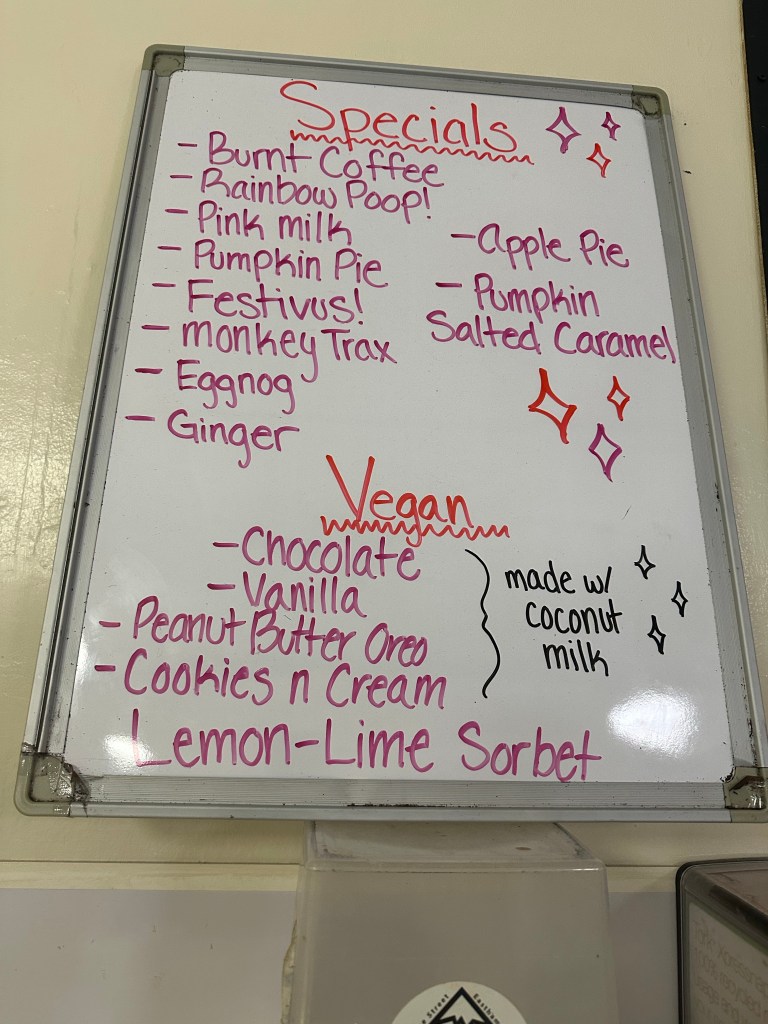 Specials
- Burnt Coffee
- Rainbow Poop!
- Pink milk
- Pumpkin Pie
- Festivus!
- monkey Trax
- Eggnog
- Ginger
- Apple Pie
- Pumpkin
Salted Caramel
Vegan
- Chocolate
- Vanilla
- Peanut Butter Oreo
- Cookies n Cream
made w/
coconut
milk
Lemon-Lime Sorbet
Street